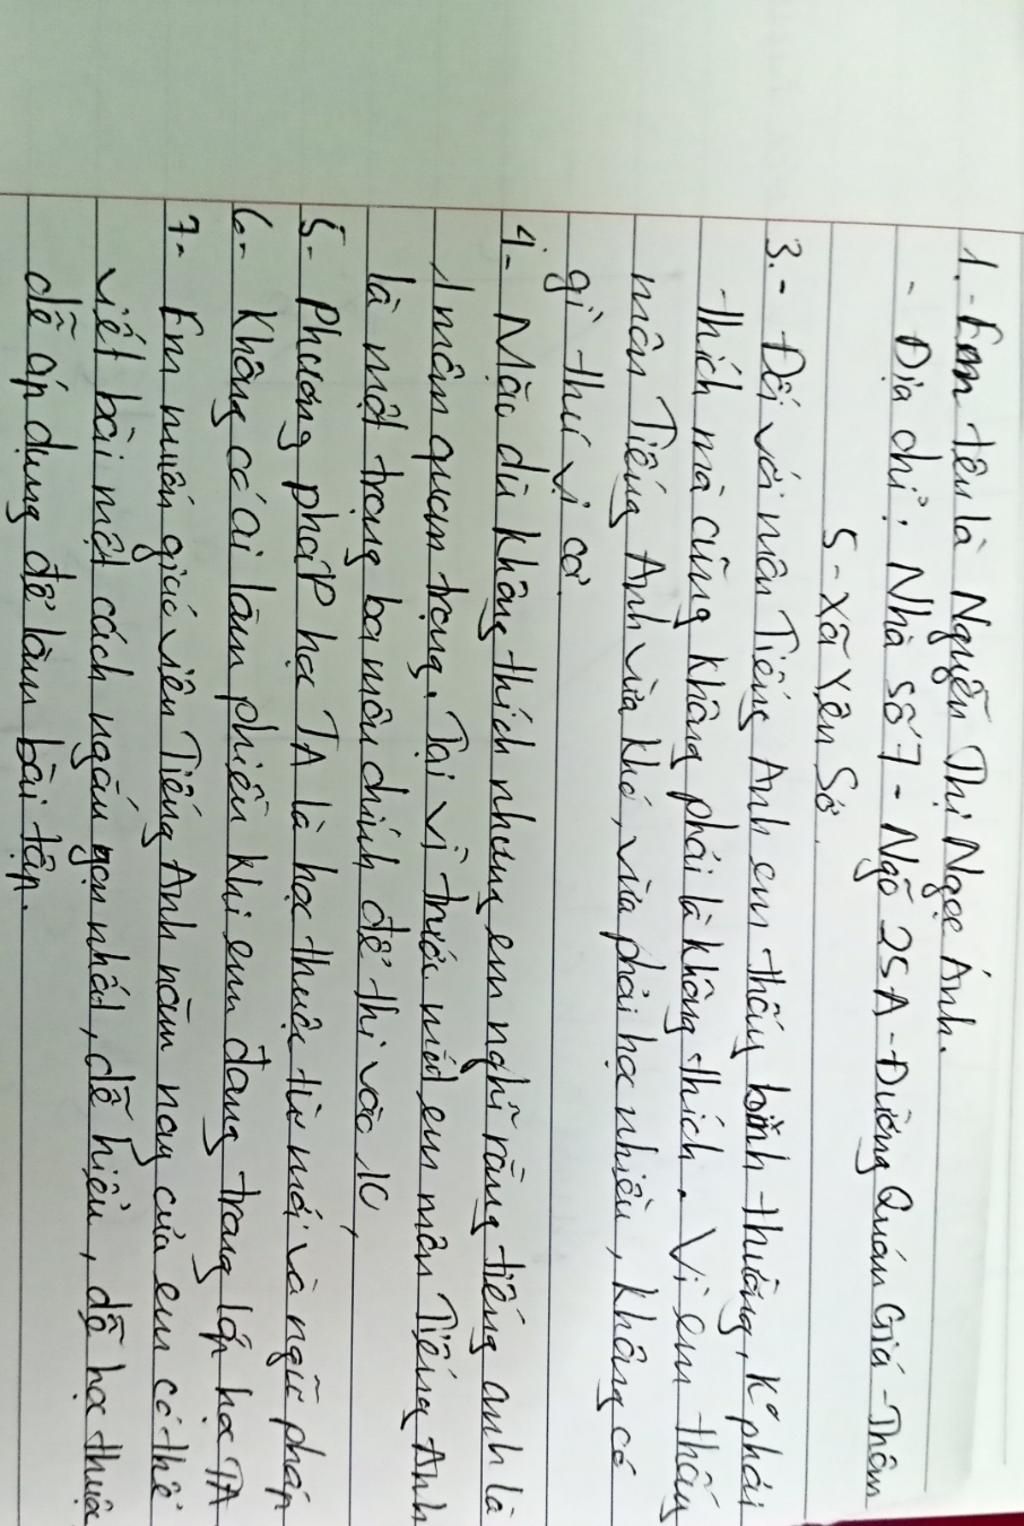 1.- Em tên là Nguyễn Thị Ngọc Ánh.
- Địa chỉ: Nhà số 7 - Ngõ 25A - Đường Quán Giá - Thôn
5 - Xã Yên Sở.
3.- Đối với môn Tiếng Anh em thấy bình thường, K° phải
thích mà cũng không phải là không thích. Vì em thấy
môn Tiếng Anh vừa khó, vừa phải học nhiều, không có
gì thú vị cả.
4- Mặc dù không thích nhưng em nghĩ rằng tiếng anh là
1 môn quan trọng. Tại vì trước mắt em môn Tiếng Anh
là một trong ba môn chính để thi vào 10,
5- Phương pháp học TA là học thuộc từ mới và ngữ pháp
6- Không có ai làm phiền khi em đang trong lớp học TA
7- Em muốn giáo viên Tiếng Anh năm nay của em có thể
viết bài một cách ngắn gọn nhất, dễ hiểu, dễ học thuộc
dễ áp dụng để làm bài tập.